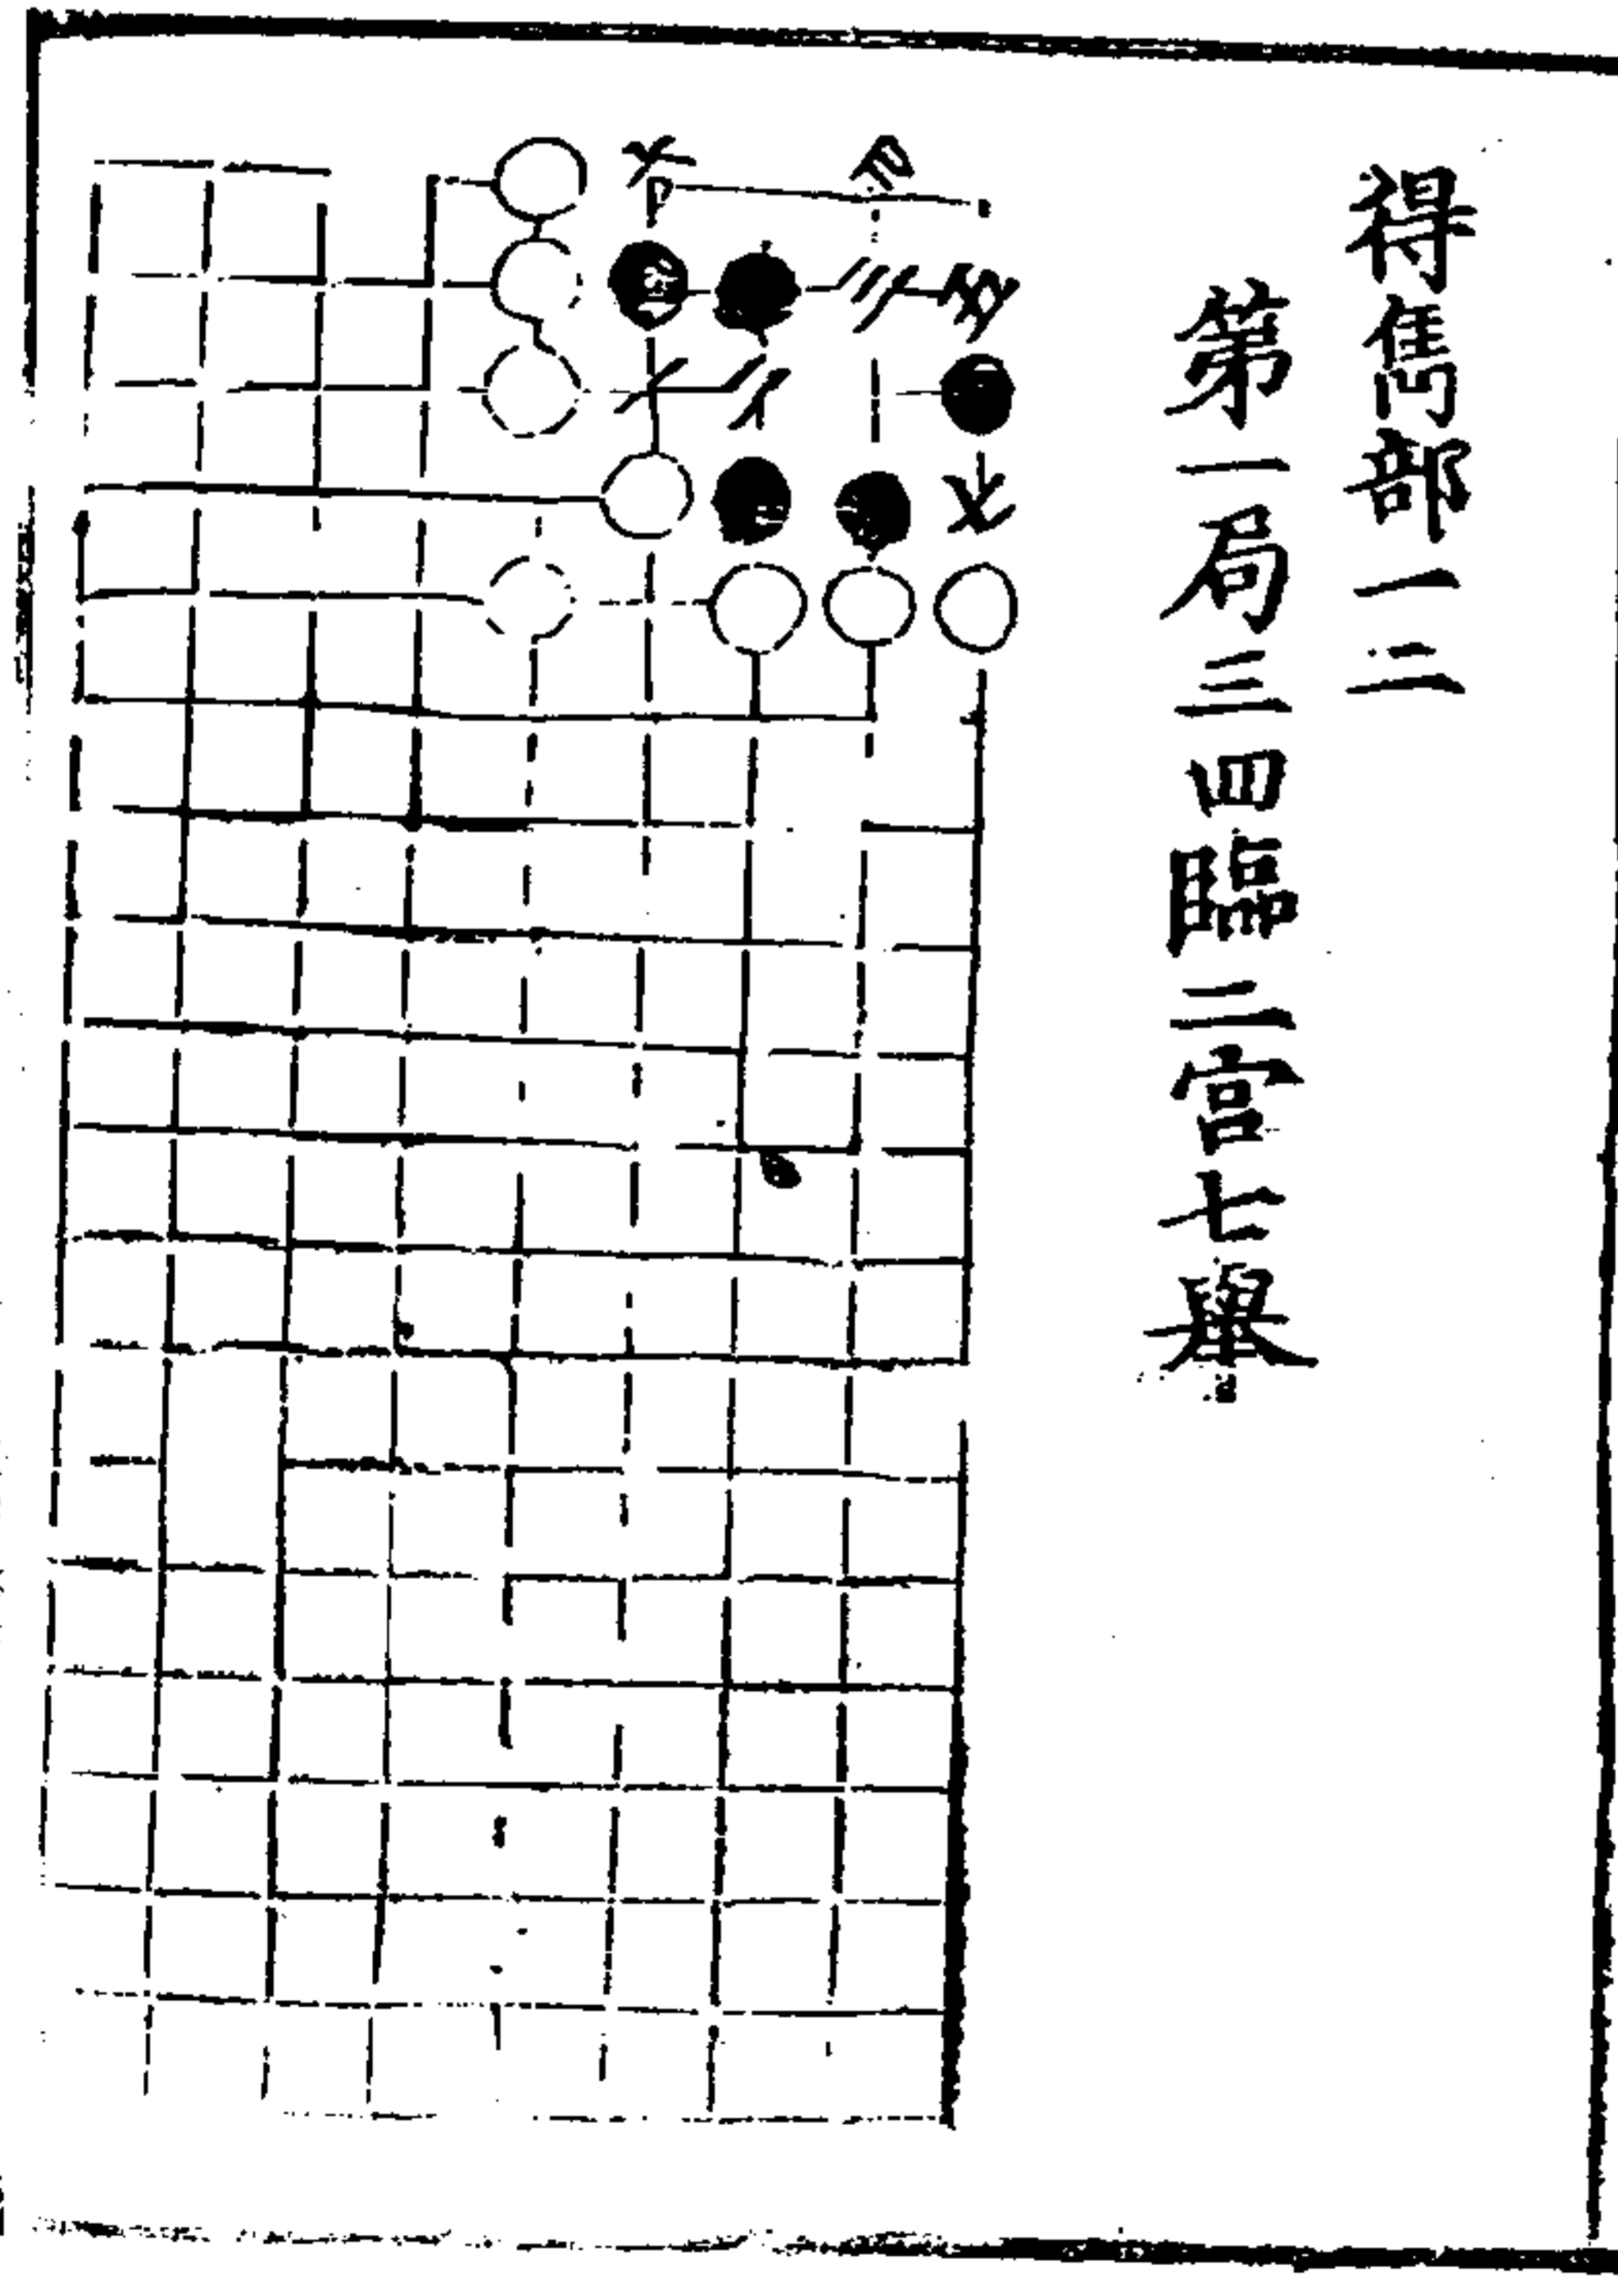 得雋部一二
第一局三四臨二宮七舉